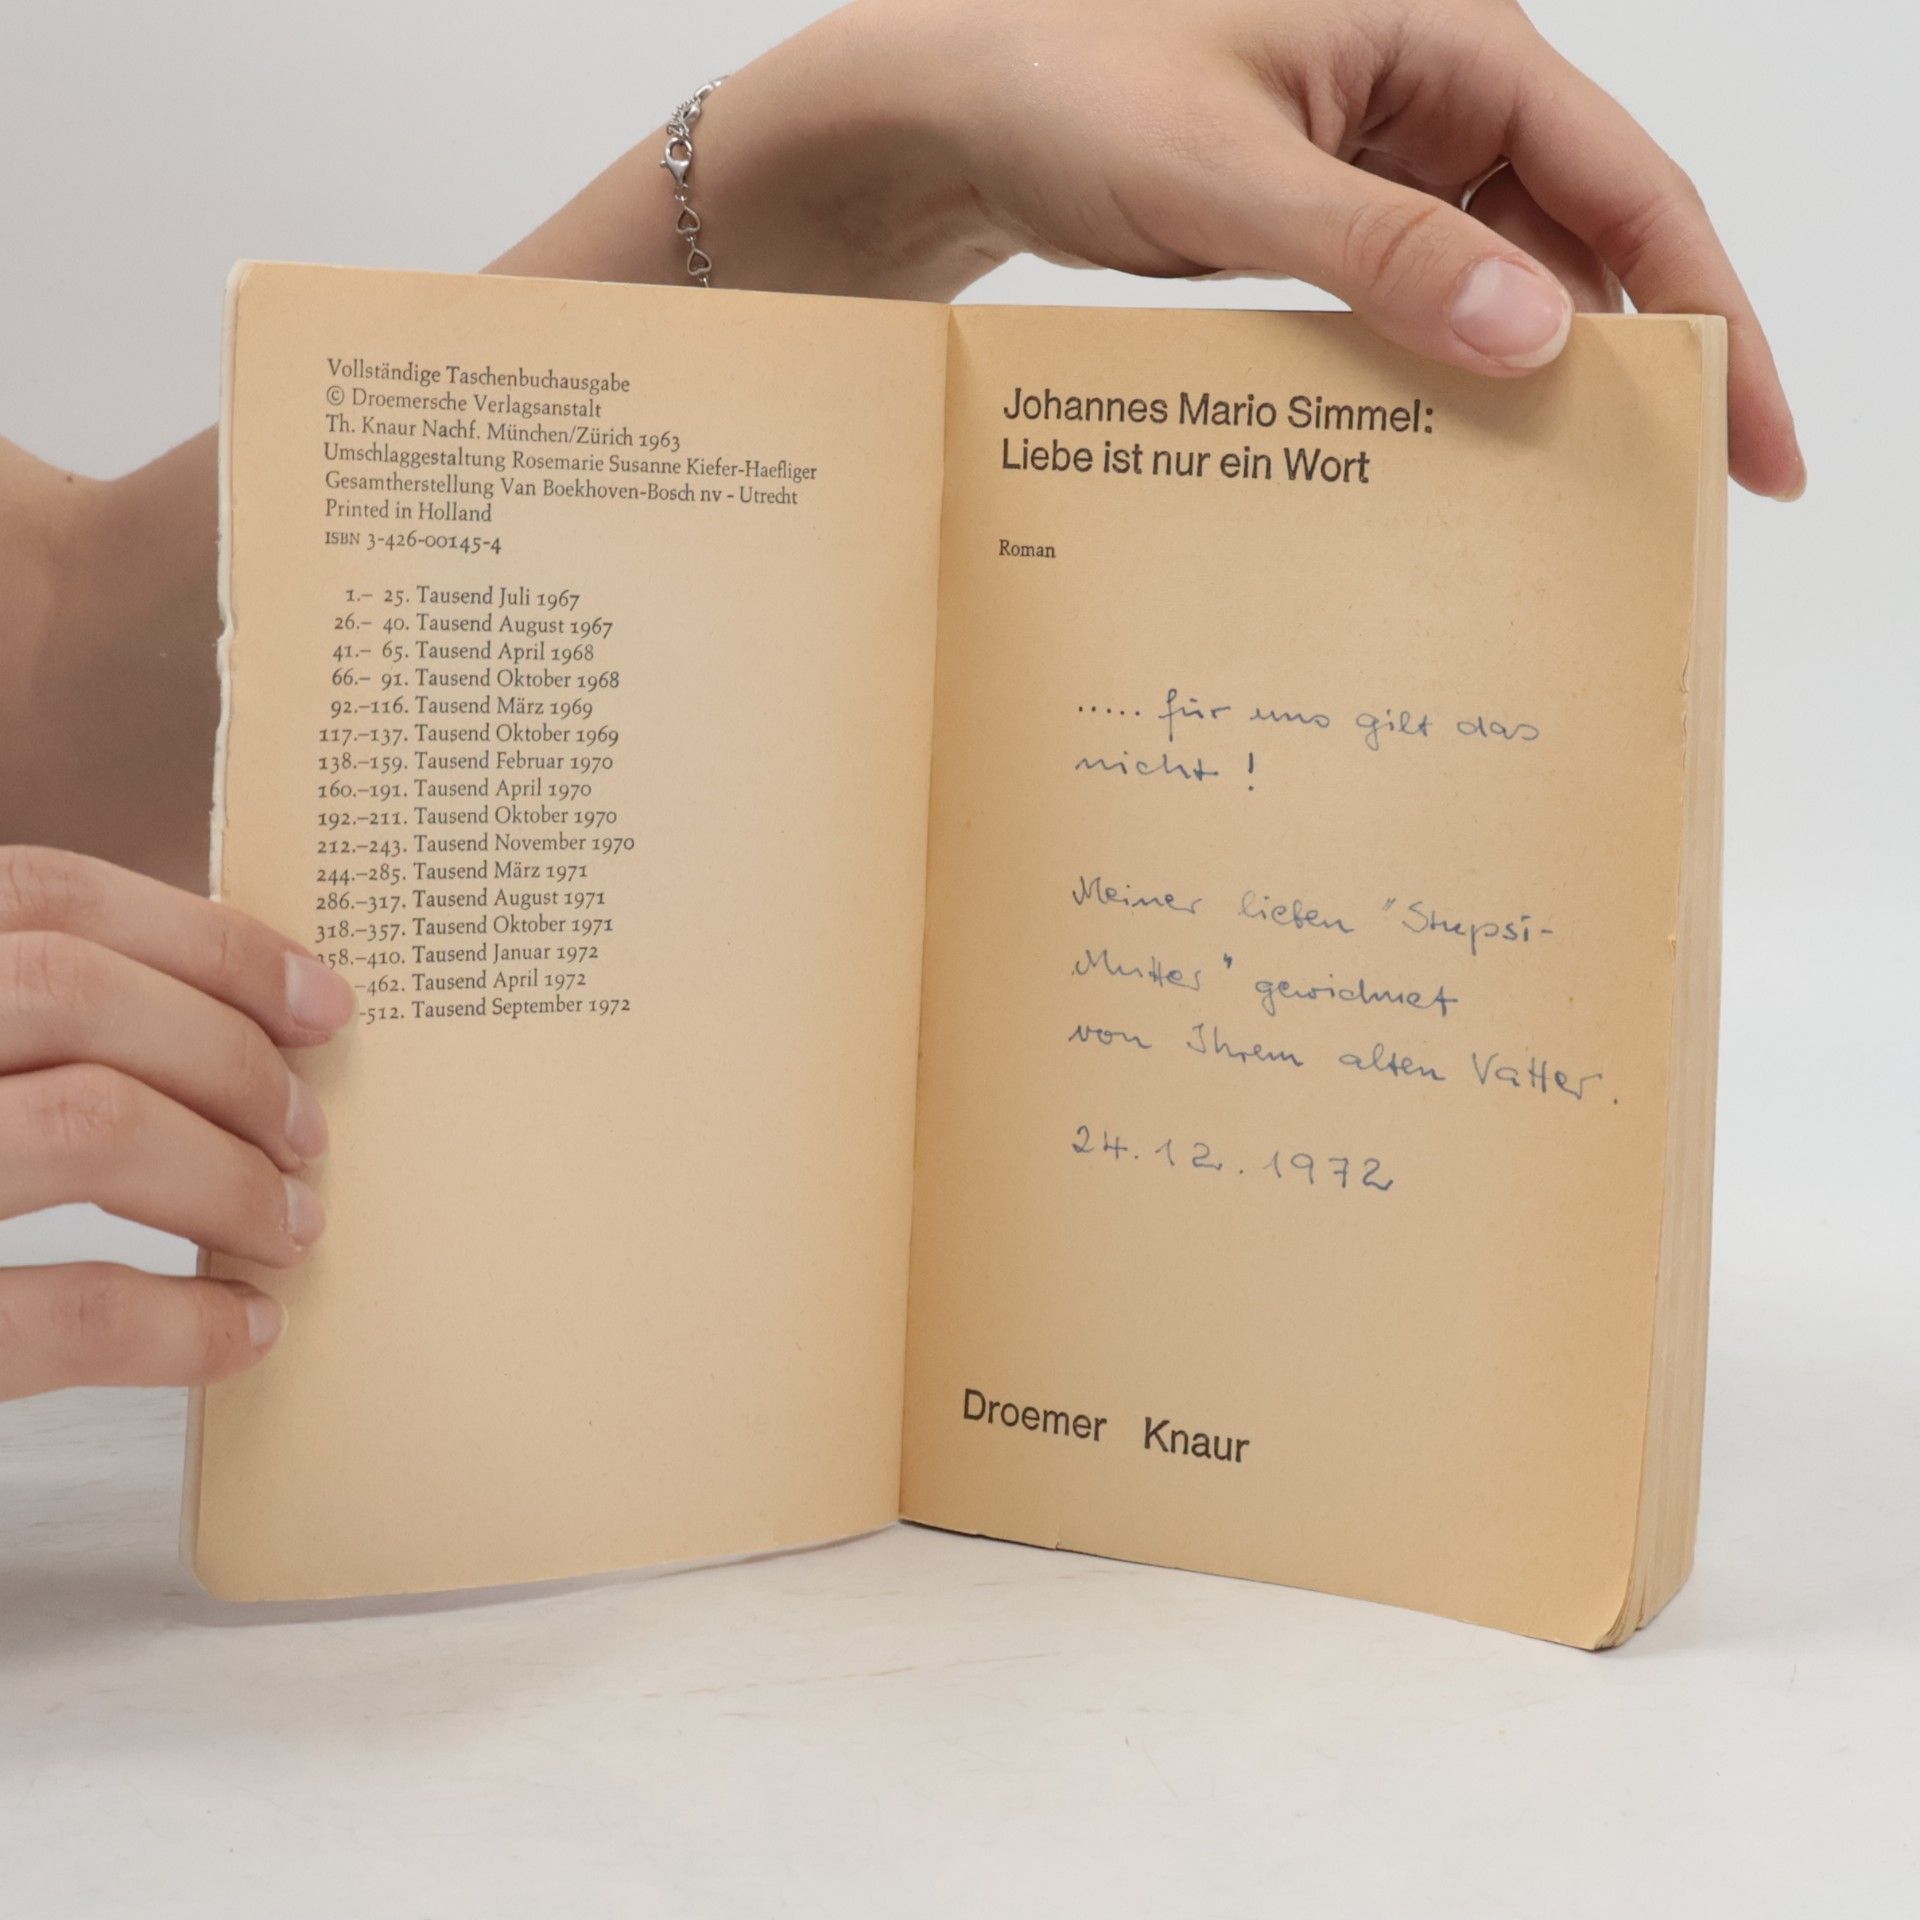 Vollständige Taschenbuchausgabe
© Droemersche Verlagsanstalt
Th. Knaur Nachf. München/Zürich 1963
Umschlaggestaltung Rosemarie Susanne Kiefer-Haefliger
Gesamtherstellung Van Boekhoven-Bosch nv - Utrecht
Printed in Holland
ISBN 3-426-00145-4
1.– 25. Tausend Juli 1967
26.– 40. Tausend August 1967
41.– 65. Tausend April 1968
66.– 91. Tausend Oktober 1968
92.–116. Tausend März 1969
117.–137. Tausend Oktober 1969
138.–159. Tausend Februar 1970
160.–191. Tausend April 1970
192.–211. Tausend Oktober 1970
212.–243. Tausend November 1970
244.–285. Tausend März 1971
286.–317. Tausend August 1971
318.–357. Tausend Oktober 1971
358.–410. Tausend Januar 1972
–462. Tausend April 1972
-512. Tausend September 1972
Johannes Mario Simmel:
Liebe ist nur ein Wort
Roman
..... für uns gilt das
nicht !
Meiner lieben "Stupsi-
Mutter" gewidmet
von Ihrem alten Vatter.
24.12.1972
Droemer Knaur